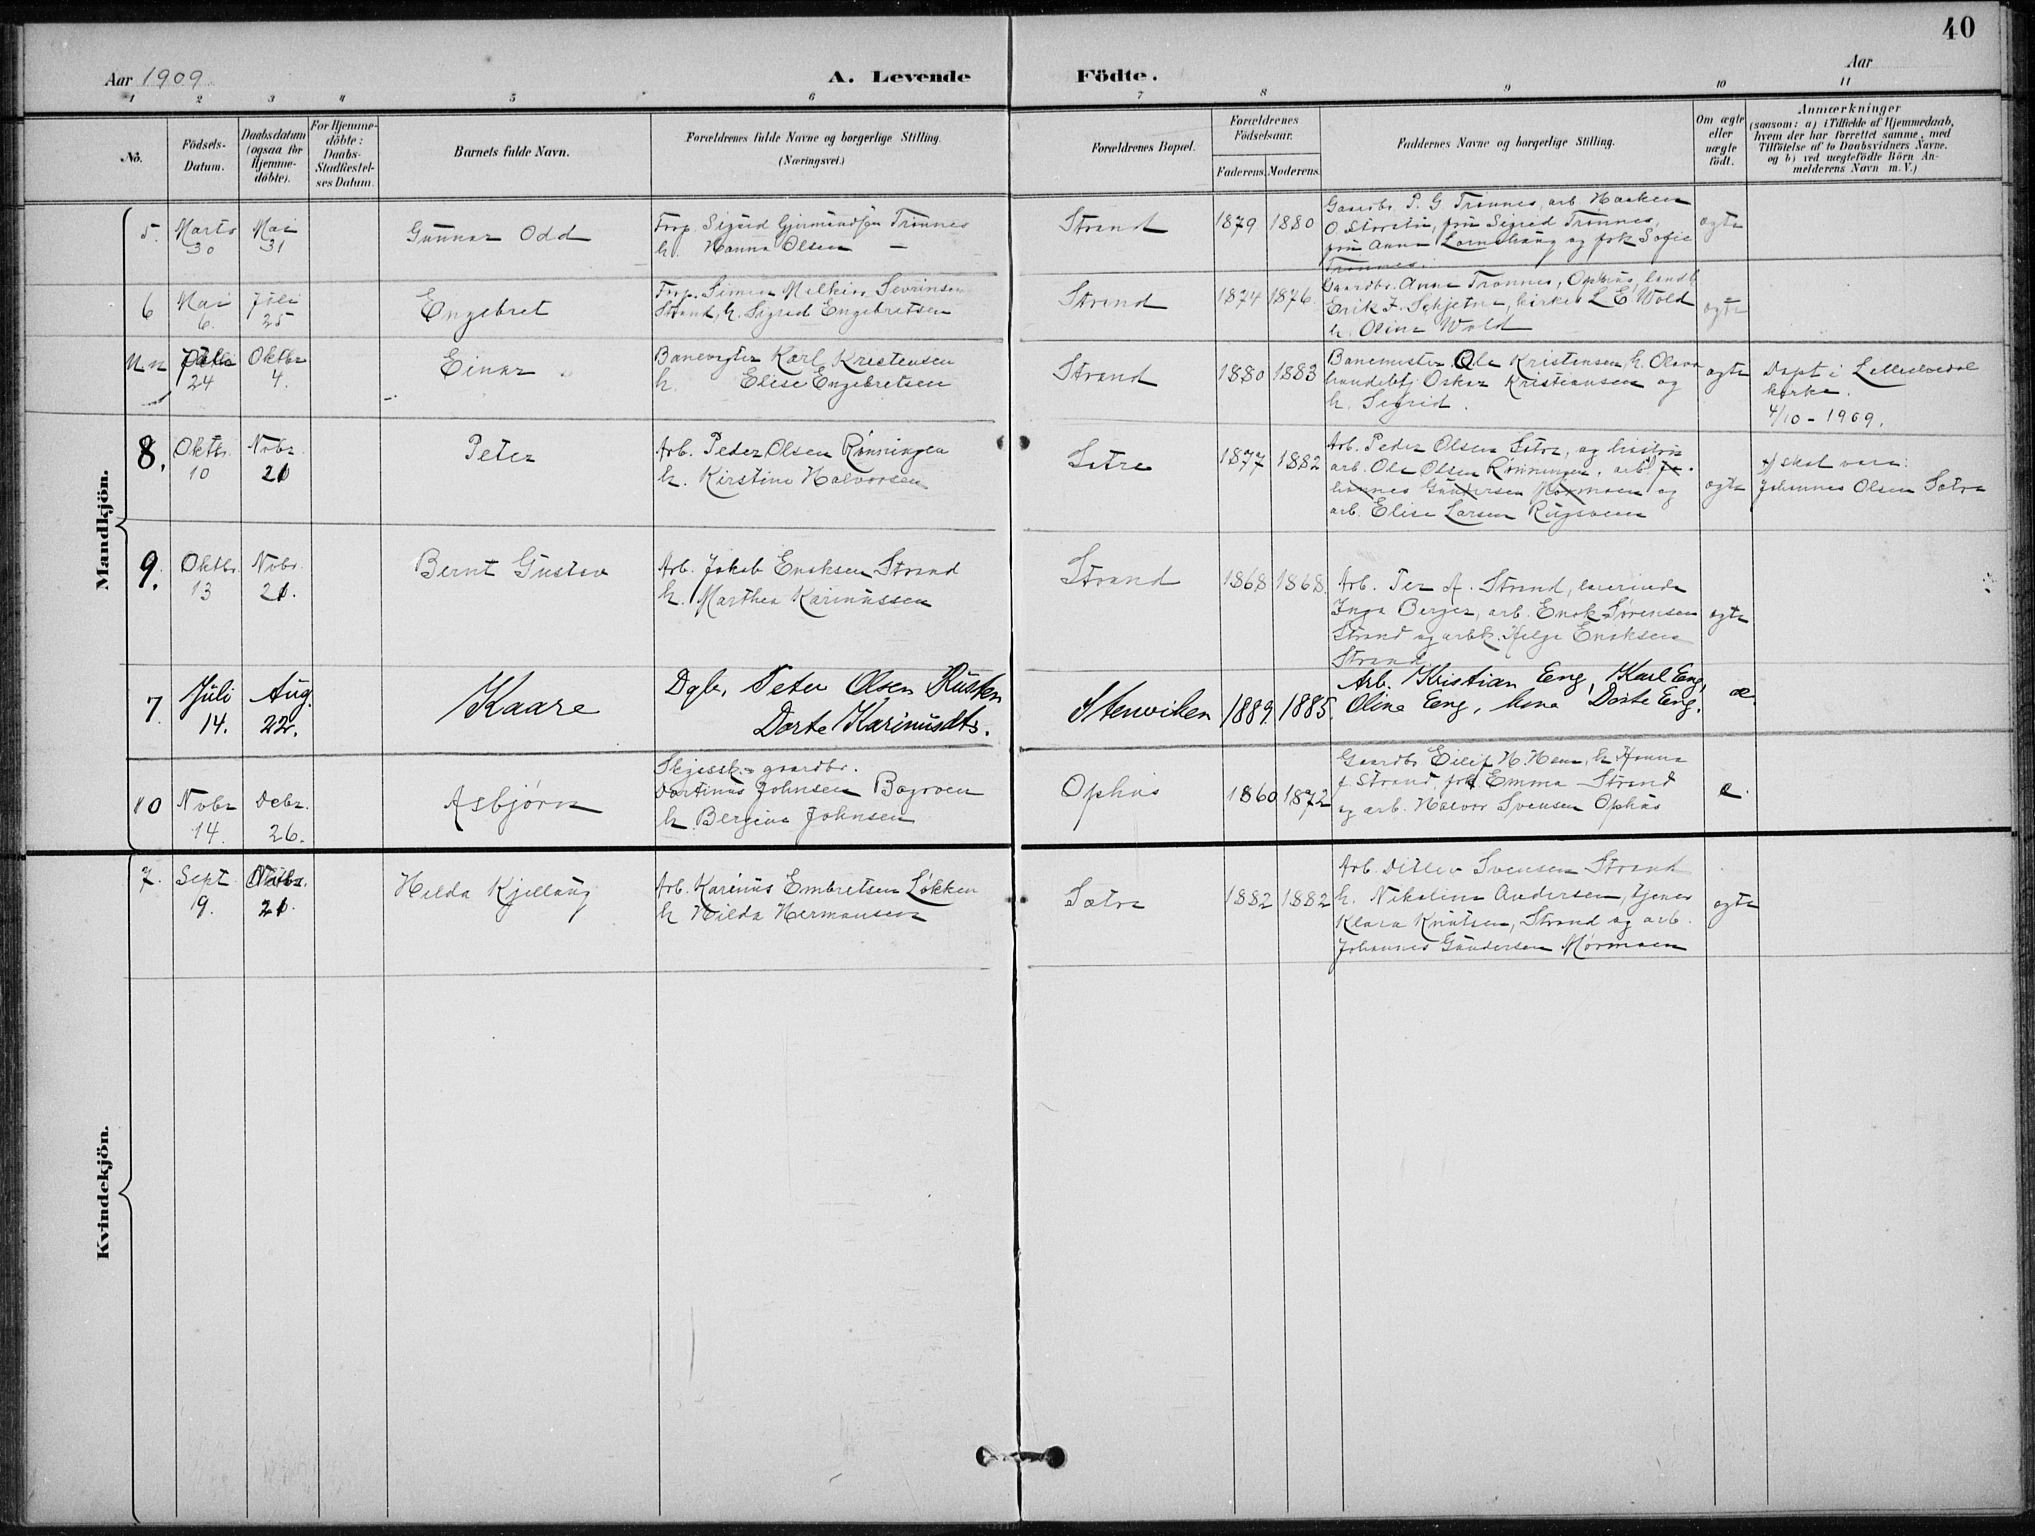 40
Aar 1909
A. Levende
Födte.
Aar
1 2 3 4 5 6 7 8 9 10 11
No.
Födsels-
Datum.
Daabsdatum
(ogsaa for
Hjemme-
döbte).
For Hjemme-
döbte:
Daabs-
Stadfæstel-
ses Datum.
Barnets fulde Navn.
Forældrenes fulde Navne og borgerlige Stilling.
(Næringsvei.)
Forældrenes Bopæl.
Forældrenes
Födselsaar.
Faderens. Moderens.
Faddernes Navne og borgerlige Stilling.
Om ægte
eller
uægte
födt.
Anmærkninger
(saasom: a) i Tilfælde af Hjemmedaab,
hvem der har forrettet samme, med
Tilföielse af to Daabsvidners Navne.
og b) ved uægtefödte Börn An-
melderens Navn m. V.)
Mandkjön.
5. Marts
30
Mai
31
Gunnar Odd
Forp. Sigurd Gjermundsen Trønnes
h. Hanna Olsen —
Strand
1879 1880
Gaardbr. P. G. Trønnes, arb. Haaken
O Storstu, fru Sigrid Trønnes,
fru Anna Lornshaug og frk Sofie
Trønnes.
ægte
6 Mai
6.
Juli
25
Engebret
Forp. Simen Melkior Sevrinsen
Strand, h. Sigrid Engebretsen
Strand
1874 1876.
Gaardbr. Anne Trønnes, Ophus, landh
Erik J. Schjetne, kirkes L E Wold
h. Oline Wold
ægte
Un
24
Oktbr
4.
Einar
Banevogter Karl Kristensen
h. Elise Engebretsen
Strand
1880 1883
Banemester Ole Kristensen, h. Olava
handelbtj Oskar Kristiansen og
h. Sigrid.
ægte
Døpt i Lilleelvedal
kirke.
4/10 - 1909.
8. Oktbr
10
Nobr
21
Peter
Arb. Peder Olsen Rønningen
h. Kirstine Halvorsen
Sætre
1877 1882
Arb. Peder Olsen Sætre, og hustru
arb. Ole Olsen Rønningen, arb. Jo-
hannes Gundersen Mørmoen og
arb. Elise Larsen Rugsveen
ægte
skal være:
Johannes Olsen Sætre
9. Oktbr.
13
Nobr.
21.
Bernt Gustav
Arb. Jakob Enoksen Strand
h. Marthea Karinussen
Strand
1868 1868.
Arb. Per A. Strand, lærerinde
Inga Berger, arb. Enok Sørensen
Strand og arbk. Helge Enoksen
Strand
ægte
7. Juli
14.
Aug.
22.
Kaare
Dgb. Peter Olsen Rusten
Dorte Karinusdtr.
Stenviken
1889. 1885.
Arb. Kristian Eng, Karl Eng,
Oline Eng, Dorte Eng.
æ.
10 Nobr
14.
Debr.
26.
Asbjørn
Skjæssk. gaardbr.
Martinus Johnsen Bagroen
h. Bergine Johnsen
Ophus
1860 1872
Gaardbr Eilif H. Hem, h Hanna
f. Strand, frk Emma Strand
og arb. Halvor Svensen Ophus
e.
Kvindekjön.
7. Sept
19.
Nobr.
21.
Hilda Kjellaug
Arb. Karinus Embretsen Løkken
h Hilda Hermansen
Sætre
1882 1882
Arb. Ditlev Svensen Strand
h. Nikoline Andersen, tjener
Klara Knutsen, Strand og arb.
Johannes Gundersen Mørmoen
ægte